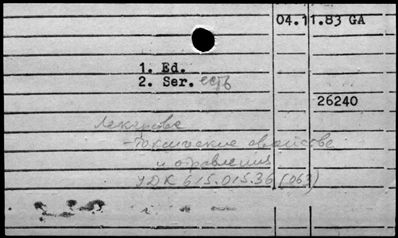 04.11.83 GA
1. Ed.
2. Ser. есть
26240
Лекарства
- токсические свойства
и отравления
УДК 615.015.36 (063)